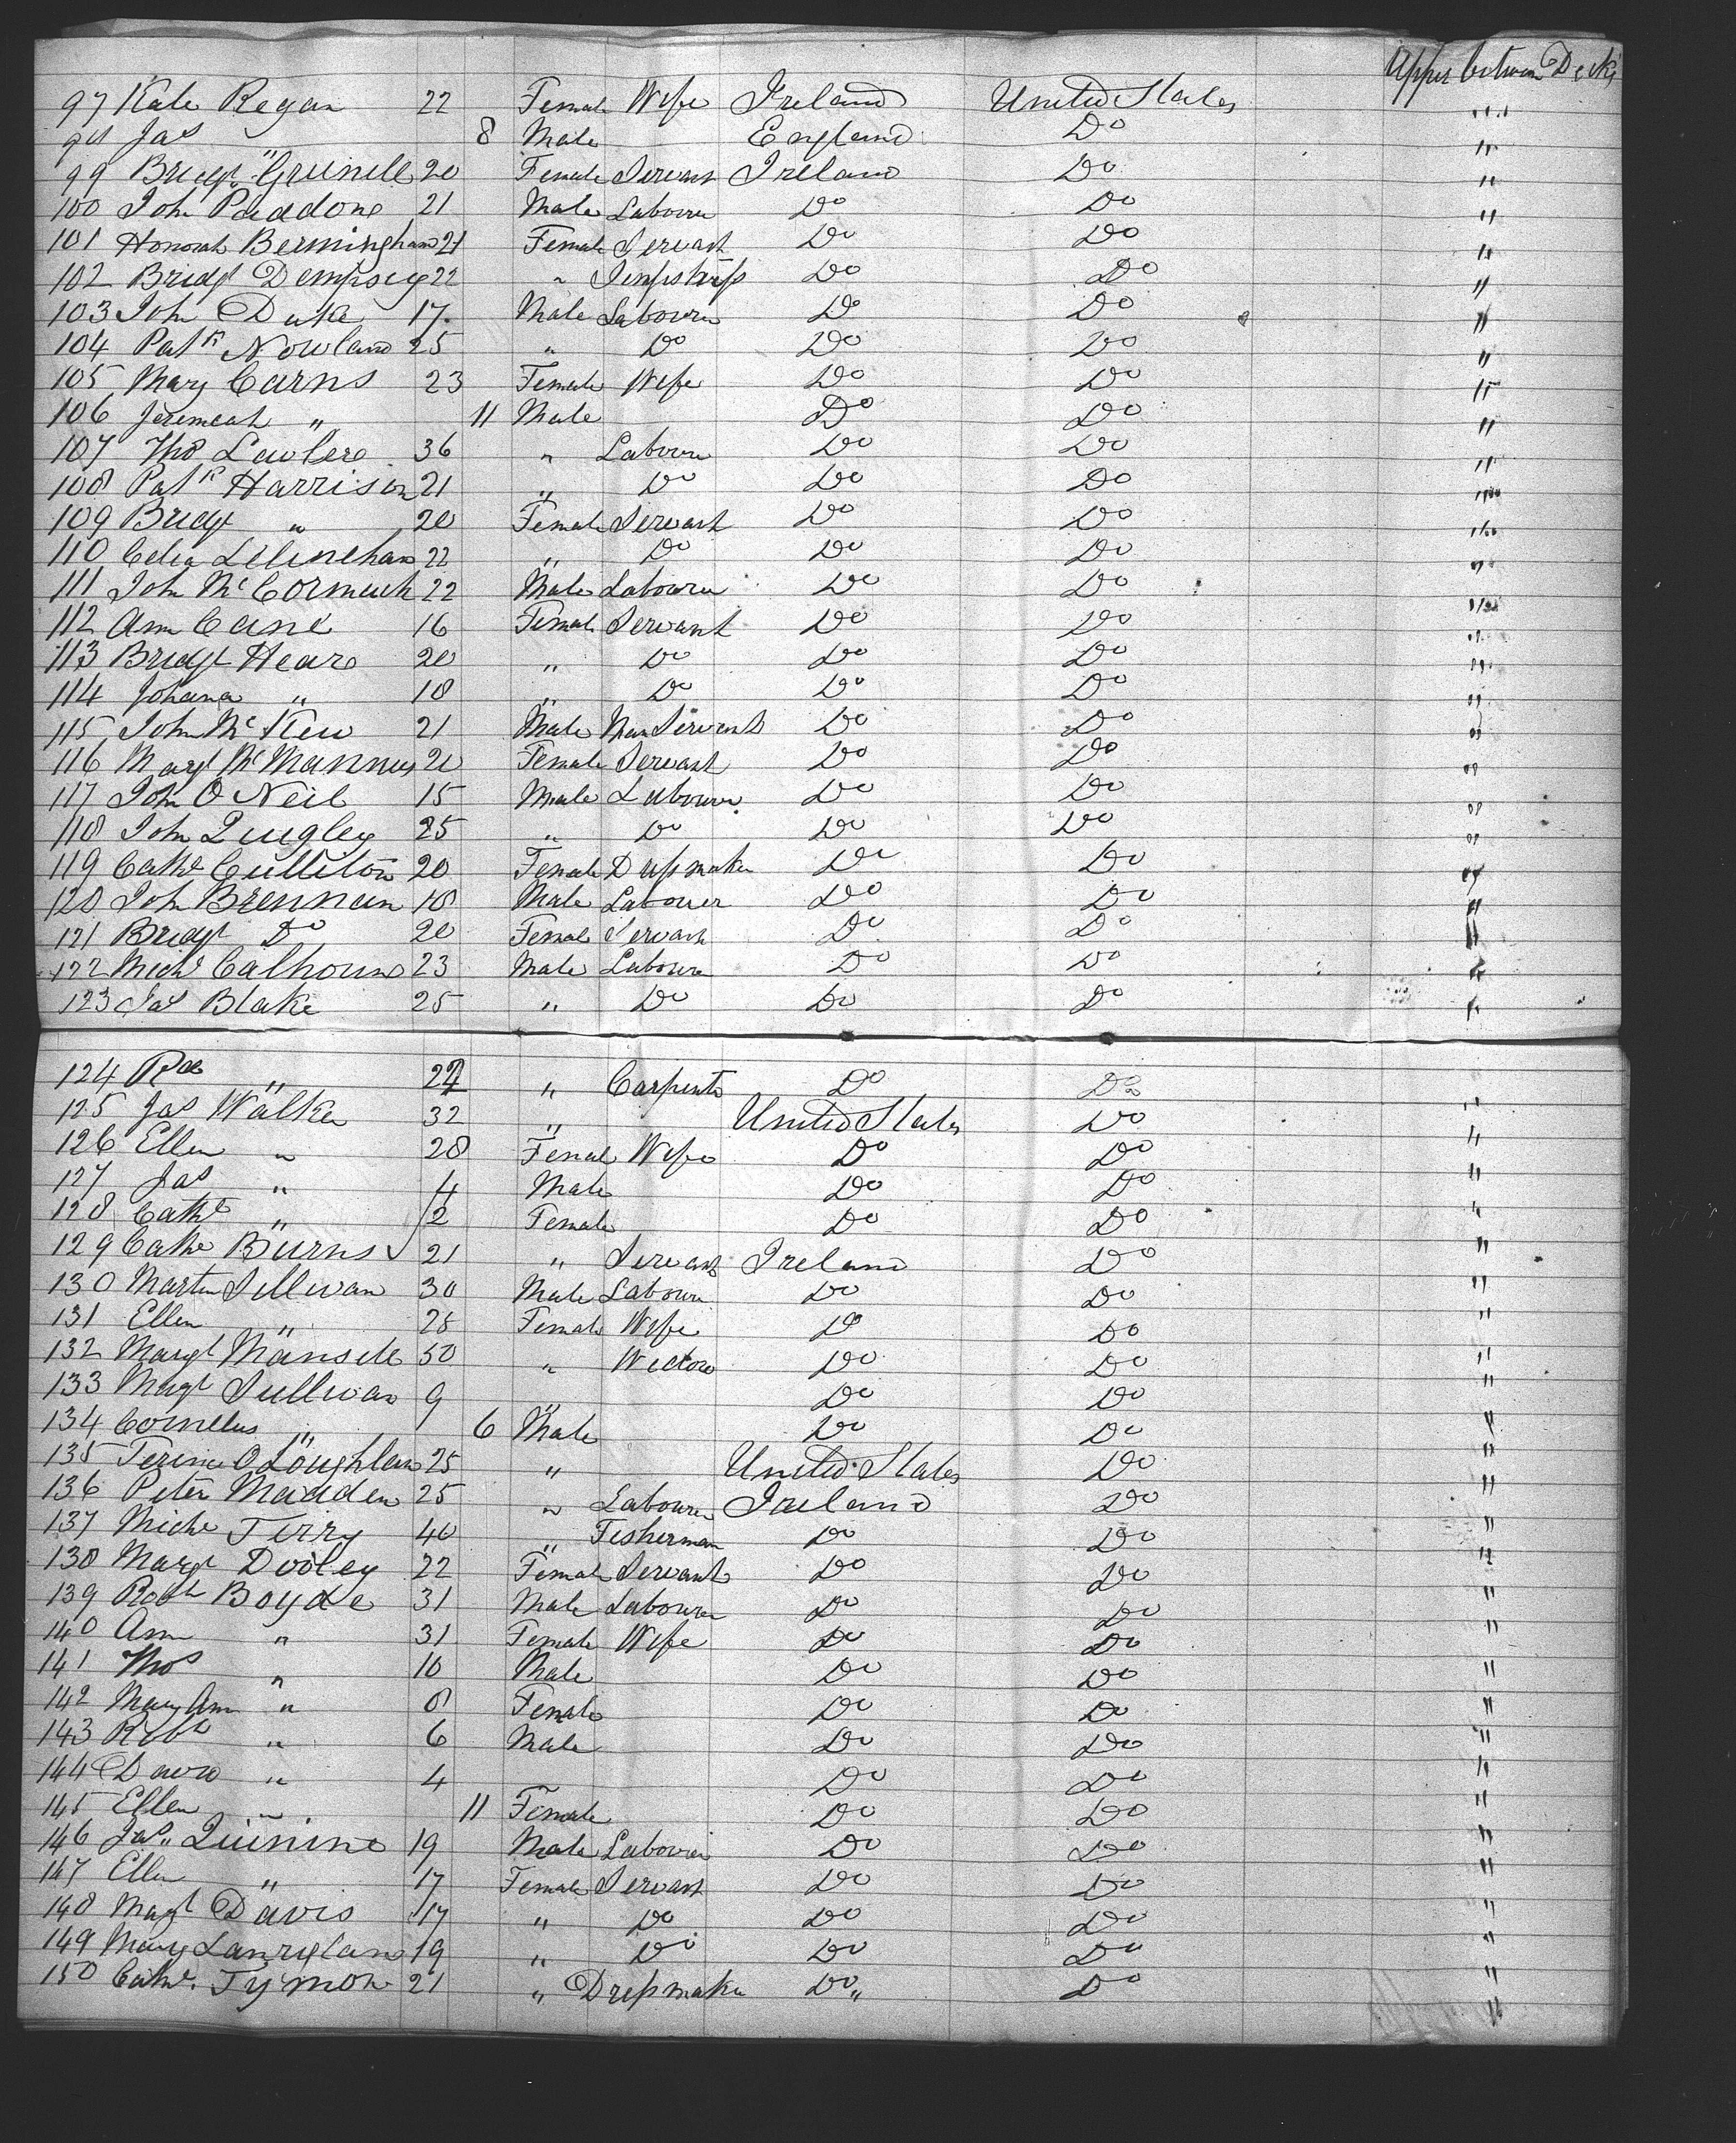 Upper between Decks
97 Kate Regan 22 Female Wife Ireland United States "
98 Jas " 8 Male England Do "
99 Bridgt 20 Female Servant Ireland Do "
100 John 21 Male Labourer Do Do "
101 Honorah Bermingham 21 Female Servant Do Do "
102 Bridgt Dempsey 22 " Do Do "
103 John 17 Male Labourer Do Do "
104 Patk Nowland 25 " Do Do Do "
105 Mary Carns 23 Female Wife Do Do "
106 Jeremeah " 11 Male Do Do "
107 Thos Lawlere 36 " Labourer Do Do "
108 Patk Harrison 21 " Do Do Do "
109 Bridgt " 20 Female Servant Do Do "
110 Celia 22 " Do Do Do "
111 John McCormick 22 Male Labourer Do Do "
112 Ann Cane 16 Female Servant Do Do "
113 Bridgt Heare 20 " Do Do Do "
114 Johana " 18 " Do Do Do "
115 John 21 Male Man Servant Do Do "
116 Margt McMannus 20 Female Servant Do Do "
117 John O Neil 15 Male Labourer Do Do "
118 John Quigley 25 " Do Do Do "
119 Cathe Culliton 20 Female Dressmaker Do Do "
120 John Brennan 18 Male Labourer Do Do "
121 Bridgt Do 20 Female Servant Do Do "
122 Michl Calhoun 23 Male Labourer Do Do "
123 Jas Blake 25 " Do Do Do "
124 " " Carpenter Do Do "
125 Jas Walker 32 " United States Do "
126 Ellen " 28 Female Wife Do Do "
127 Jas " 4 Male Do Do "
128 Cathe " 2 Female Do Do "
129 Cathe Burns 21 " Servant Ireland Do "
130 Martin Sullivan 30 Male Labourer Do Do "
131 Ellen " 25 Female Wife Do Do "
132 Margt Mansell 50 " Widow Do Do "
133 Margt Sullivan 9 " Do Do "
134 Cornelius " 6 Male Do Do "
135 O Loughlan 25 " United States Do "
136 Peter Madden 25 " Labourer Ireland Do "
137 Michl Terry 40 " Fisherman Do Do "
138 Margt Dooley 22 Female Servant Do Do "
139 Robt Boyde 31 Male Labourer Do Do "
140 Ann " 31 Female Wife Do Do "
141 Thos " 10 Male Do Do "
142 Mary Ann " 8 Female Do Do "
143 Robt " 6 Male Do Do "
144 David " 4 Do Do "
145 Ellen " 11 Female Do Do "
146 Jas Quinine 19 Male Labourer Do Do "
147 Ellen " 17 Female Servant Do Do "
148 Magt Davis 17 " Do Do Do "
149 Mary 19 " Do Do Do "
150 Cathe Tymon 21 " Dressmaker Do " Do "